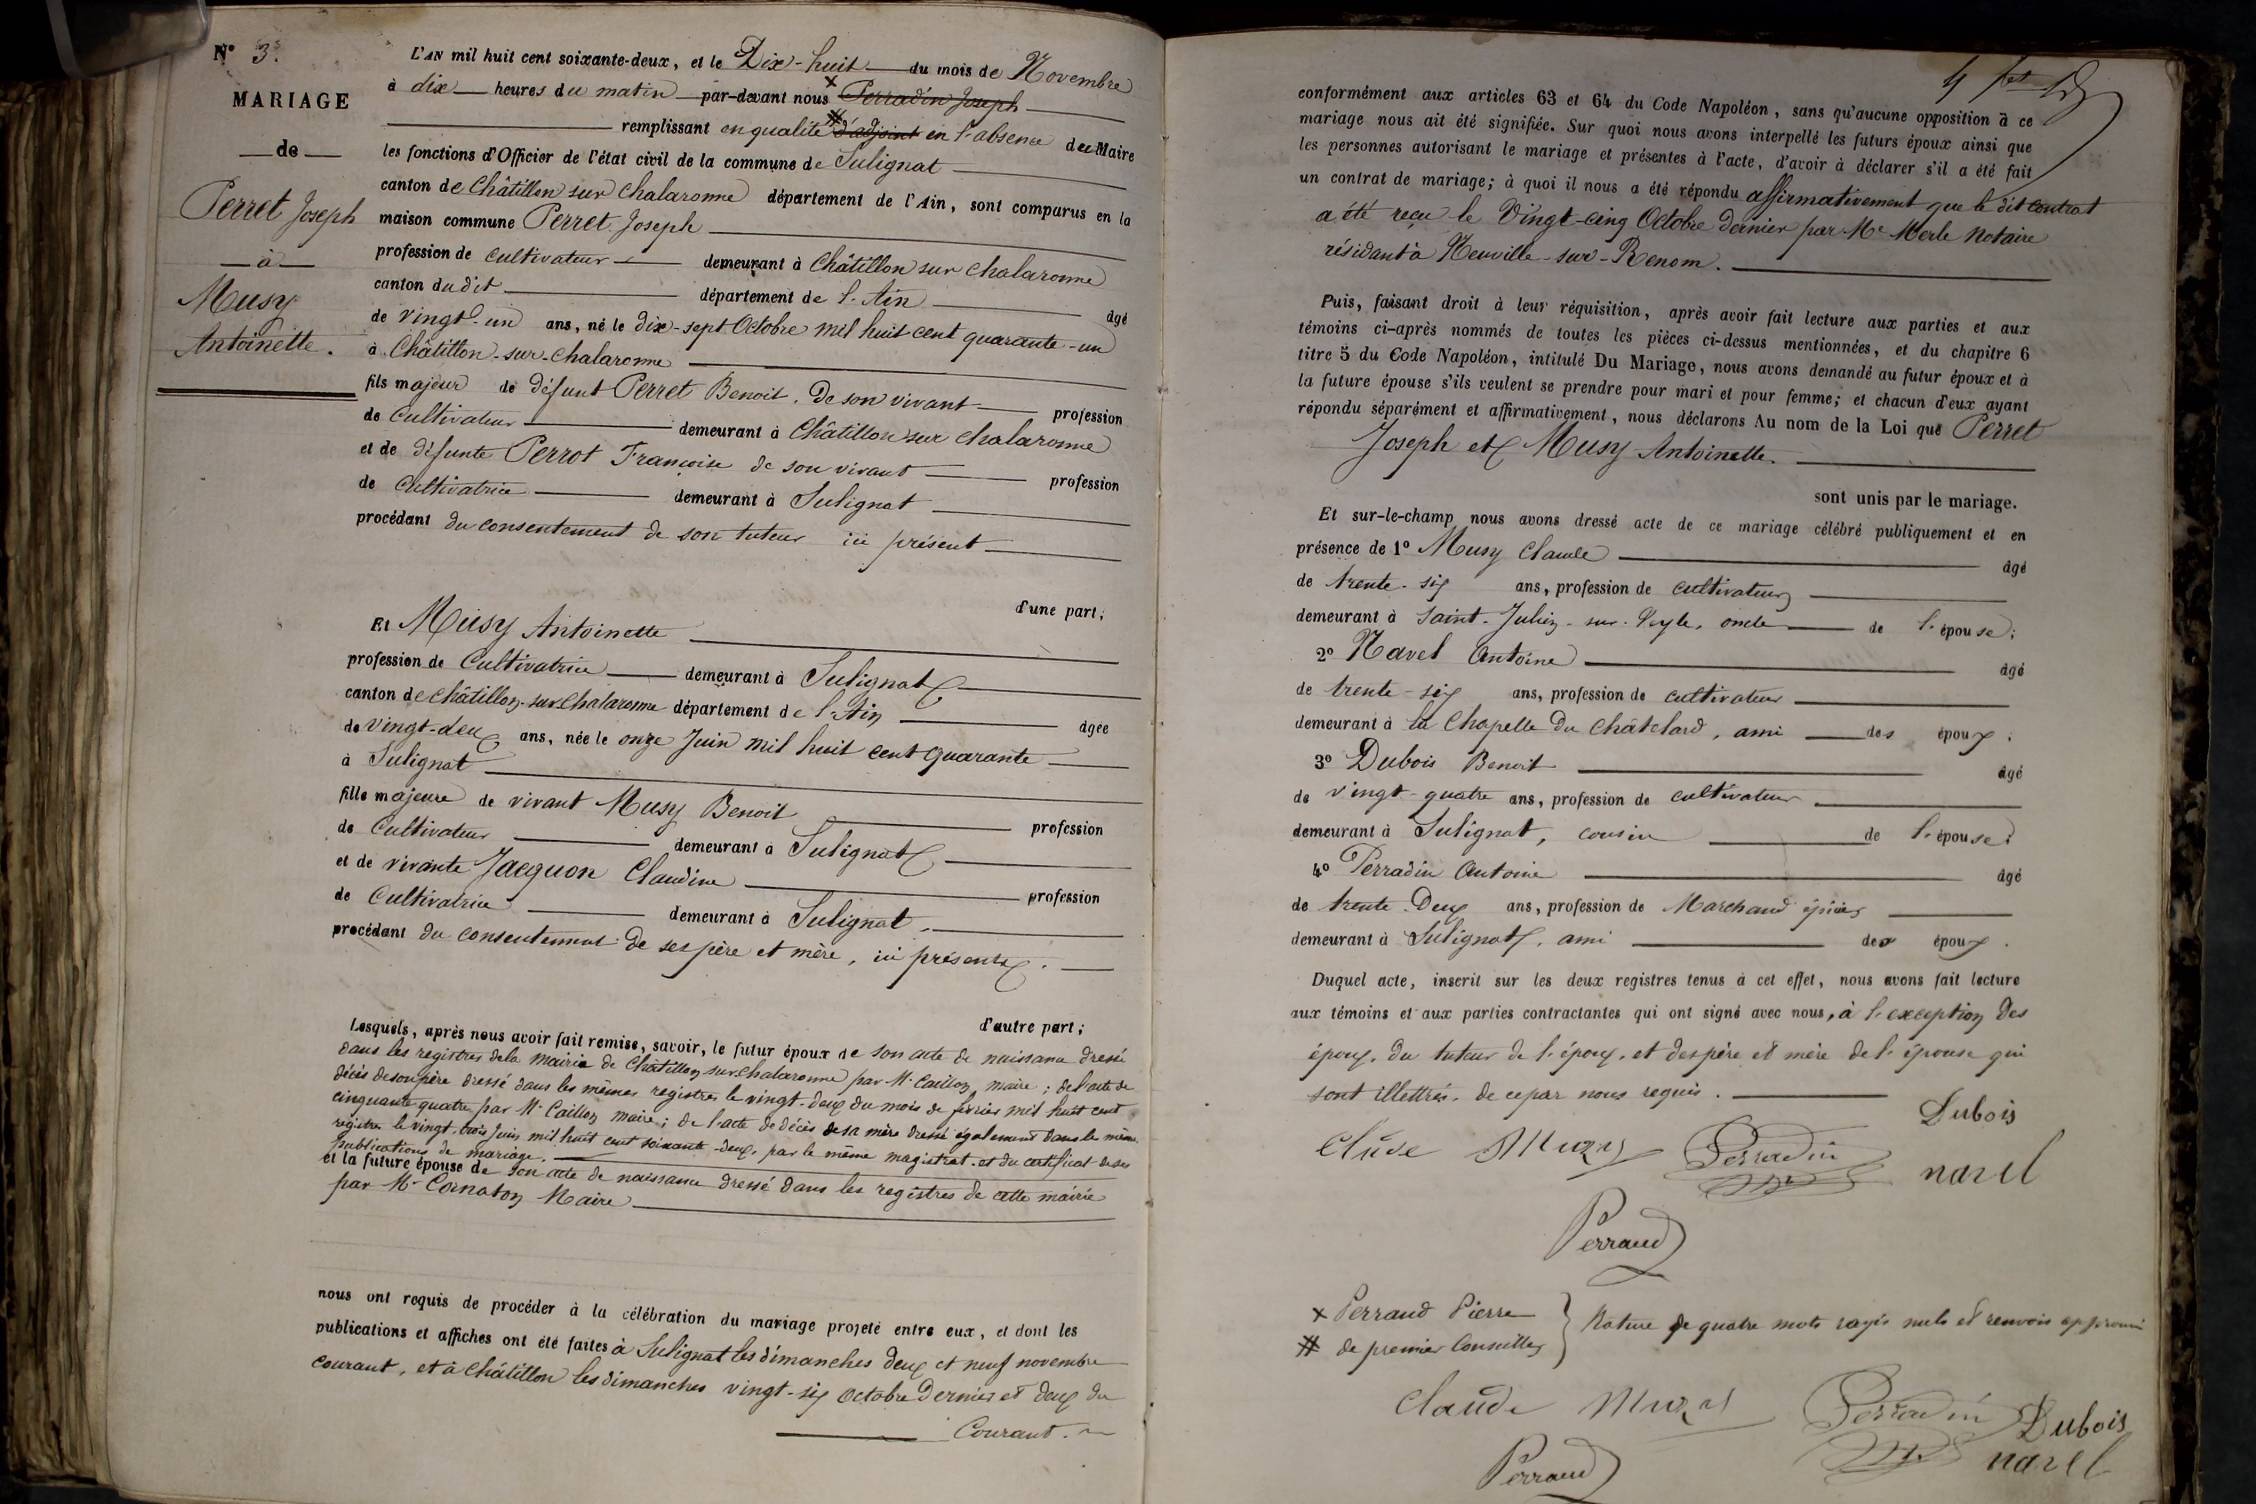 N° 3.
MARIAGE
de
Perret Joseph
à
Musy
Antoinette.
L'AN mil huit cent soixante-deux, et le Dix-huit du mois de Novembre
à dix heures du matin par-devant nous x Perradin Joseph
remplissant en qualité # d'adjoint en l'absence du Maire
les fonctions d'Officier de l'état civil de la commune de Sulignat
canton de Châtillon sur Chalaronne département de l'Ain, sont comparus en la
maison commune Perret Joseph
profession de cultivateur demeurant à Châtillon sur Chalaronne
canton dudit département de l'Ain âgé
de vingt-un ans, né le dix-sept Octobre mil huit cent quarante-un
à Châtillon-sur-Chalaronne
fils majeur de défunt Perret Benoit, de son vivant profession
de Cultivateur demeurant à Châtillon sur Chalaronne
et de défunte Perrot Françoise de son vivant profession
de Cultivatrice demeurant à Sulignat
procédant du consentement de son tuteur ici présent
d'une part;
Et Musy Antoinette
profession de Cultivatrice demeurant à Sulignat
canton de Châtillon-sur-Chalaronne département de l'Ain âgée
de vingt-deux ans, née le onze Juin mil huit cent quarante
à Sulignat
fille majeure de vivant Musy Benoit profession
de Cultivateur demeurant à Sulignat
et de vivante Jacquon Claudine profession
de Cultivatrice demeurant à Sulignat.
procédant du consentement de ses père et mère, ici présents.
d'autre part;
Lesquels, après nous avoir fait remise, savoir, le futur époux de son acte de naissance dressé
dans les registres de la mairie de Châtillon sur Chalaronne par Mr Caillon, maire; de l'acte de
décès de son père dressé dans les mêmes registres le vingt-deux du mois de février mil huit cent
cinquante quatre par Mr Caillon maire; de l'acte de décès de sa mère dressé également dans le même
registre le vingt-trois Juin mil huit cent soixante-deux, par le même magistrat et du certificat de ses
publications de mariage.
et la future épouse de son acte de naissance dressé dans les registres de cette mairie
par Mr Cornaton Maire
nous ont requis de procéder à la célébration du mariage projeté entre eux, et dont les
publications et affiches ont été faites à Sulignat les dimanches deux et neuf novembre
courant, et à Châtillon les dimanches vingt-six Octobre Dernier et deux du
Courant.
conformément aux articles 63 et 64 du Code Napoléon, sans qu'aucune opposition à ce
mariage nous ait été signifiée. Sur quoi nous avons interpellé les futurs époux ainsi que
les personnes autorisant le mariage et présentes à l'acte, d'avoir à déclarer s'il a été fait
un contrat de mariage; à quoi il nous a été répondu affirmativement que le dit contrat
a été reçu le Vingt-cinq Octobre dernier par Me Merle Notaire
résidant à Neuville-sur-Renom.
Puis, faisant droit à leur réquisition, après avoir fait lecture aux parties et aux
témoins ci-après nommés de toutes les pièces ci-dessus mentionnées, et du chapitre 6
titre 5 du Code Napoléon, intitulé Du Mariage, nous avons demandé au futur époux et à
la future épouse s'ils veulent se prendre pour mari et pour femme; et chacun d'eux ayant
répondu séparément et affirmativement, nous déclarons Au nom de la Loi que Perret
Joseph et Musy Antoinette.
sont unis par le mariage.
Et sur-le-champ nous avons dressé acte de ce mariage célébré publiquement et en
présence de 1° Musy Claude âgé
de trente-six ans, profession de cultivateur
demeurant à Saint-Julien-sur-Veyle, oncle de l'épouse;
2° Navel Antoine âgé
de trente-six ans, profession de cultivateur
demeurant à la Chapelle du Châtelard, ami des époux.
3° Dubois Benoit âgé
de vingt-quatre ans, profession de cultivateur
demeurant à Sulignat, cousin de l'épouse;
4° Perradin Antoine âgé
de trente-Deux ans, profession de Marchand épicier
demeurant à Sulignat, ami des époux.
Duquel acte, inscrit sur les deux registres tenus à cet effet, nous avons fait lecture
aux témoins et aux parties contractantes qui ont signé avec nous, à l'exception des
époux, du tuteur de l'époux, et des père et mère de l'épouse qui
sont illettrés, de ce par nous requis.
Dubois
Claude Muzy Perradin navel
Perraud
x Perraud Pierre
# de premier Conseiller
Rature de quatre mots rayés nuls et renvois approuvé
Claude Muzy Perradin Dubois
navel
Perraud